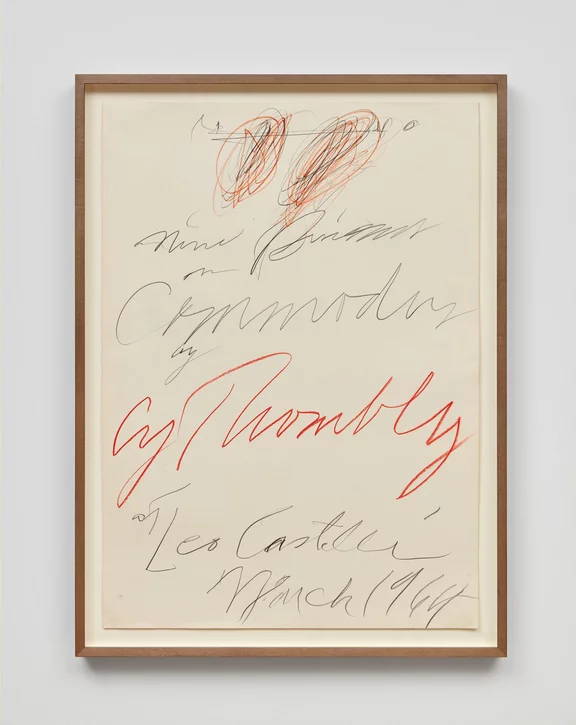 nine
on
Commodus
by
Cy Twombly
at Leo Castelli
March 1964